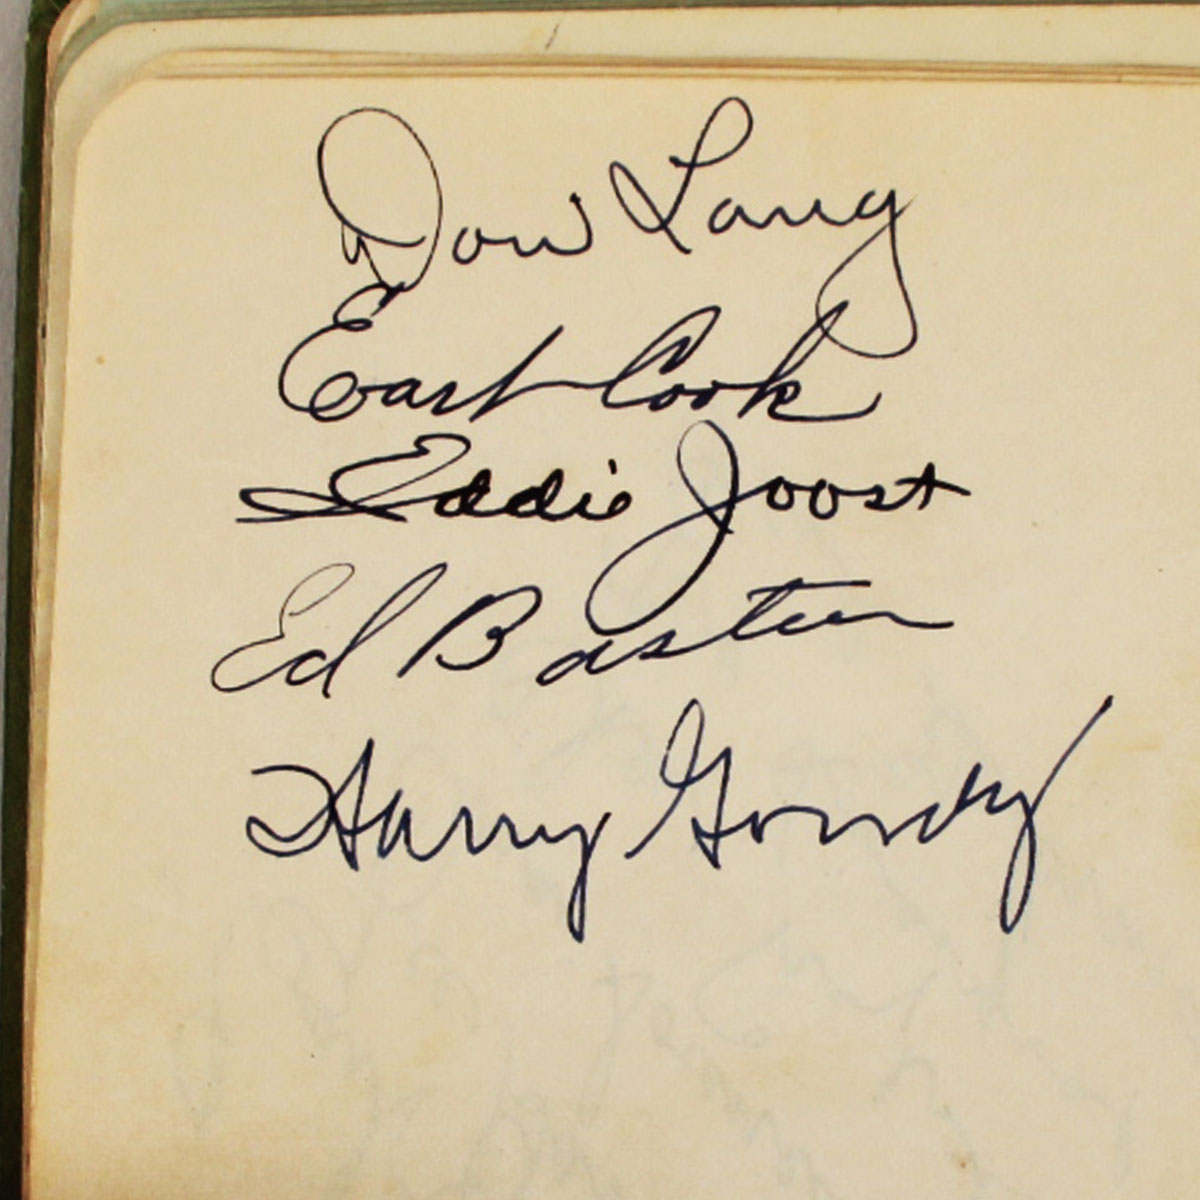 Don Lang
Earl Cook
Eddie Joost
Ed Bastien
Harry Gowdy